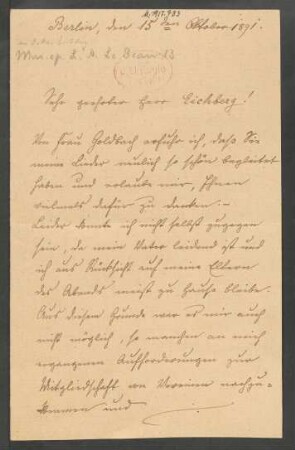 A/1917.933
Berlin, den 15ten Oktober 1891.
Mus. ep. L. A. Le Beau
Sehr geehrter Herr Eichberg!
Von Frau Goldbach erfuhr ich, daß Sie
meine Lieder neulich so schön begleitet
haben und erlaube mir, Ihnen
vielmals dafür zu danken. –
Leider konnte ich nicht selbst zugegen
sein, da mein Vater leidend ist und
ich aus Rücksicht auf meine Eltern
des Abends meist zu Hause bleibe.
Aus diesem Grunde war es mir auch
nicht möglich, so manchen an mich
ergangenen Aufforderungen zur
Mitgliedschaft an Vereinen nachzu-
kommen und